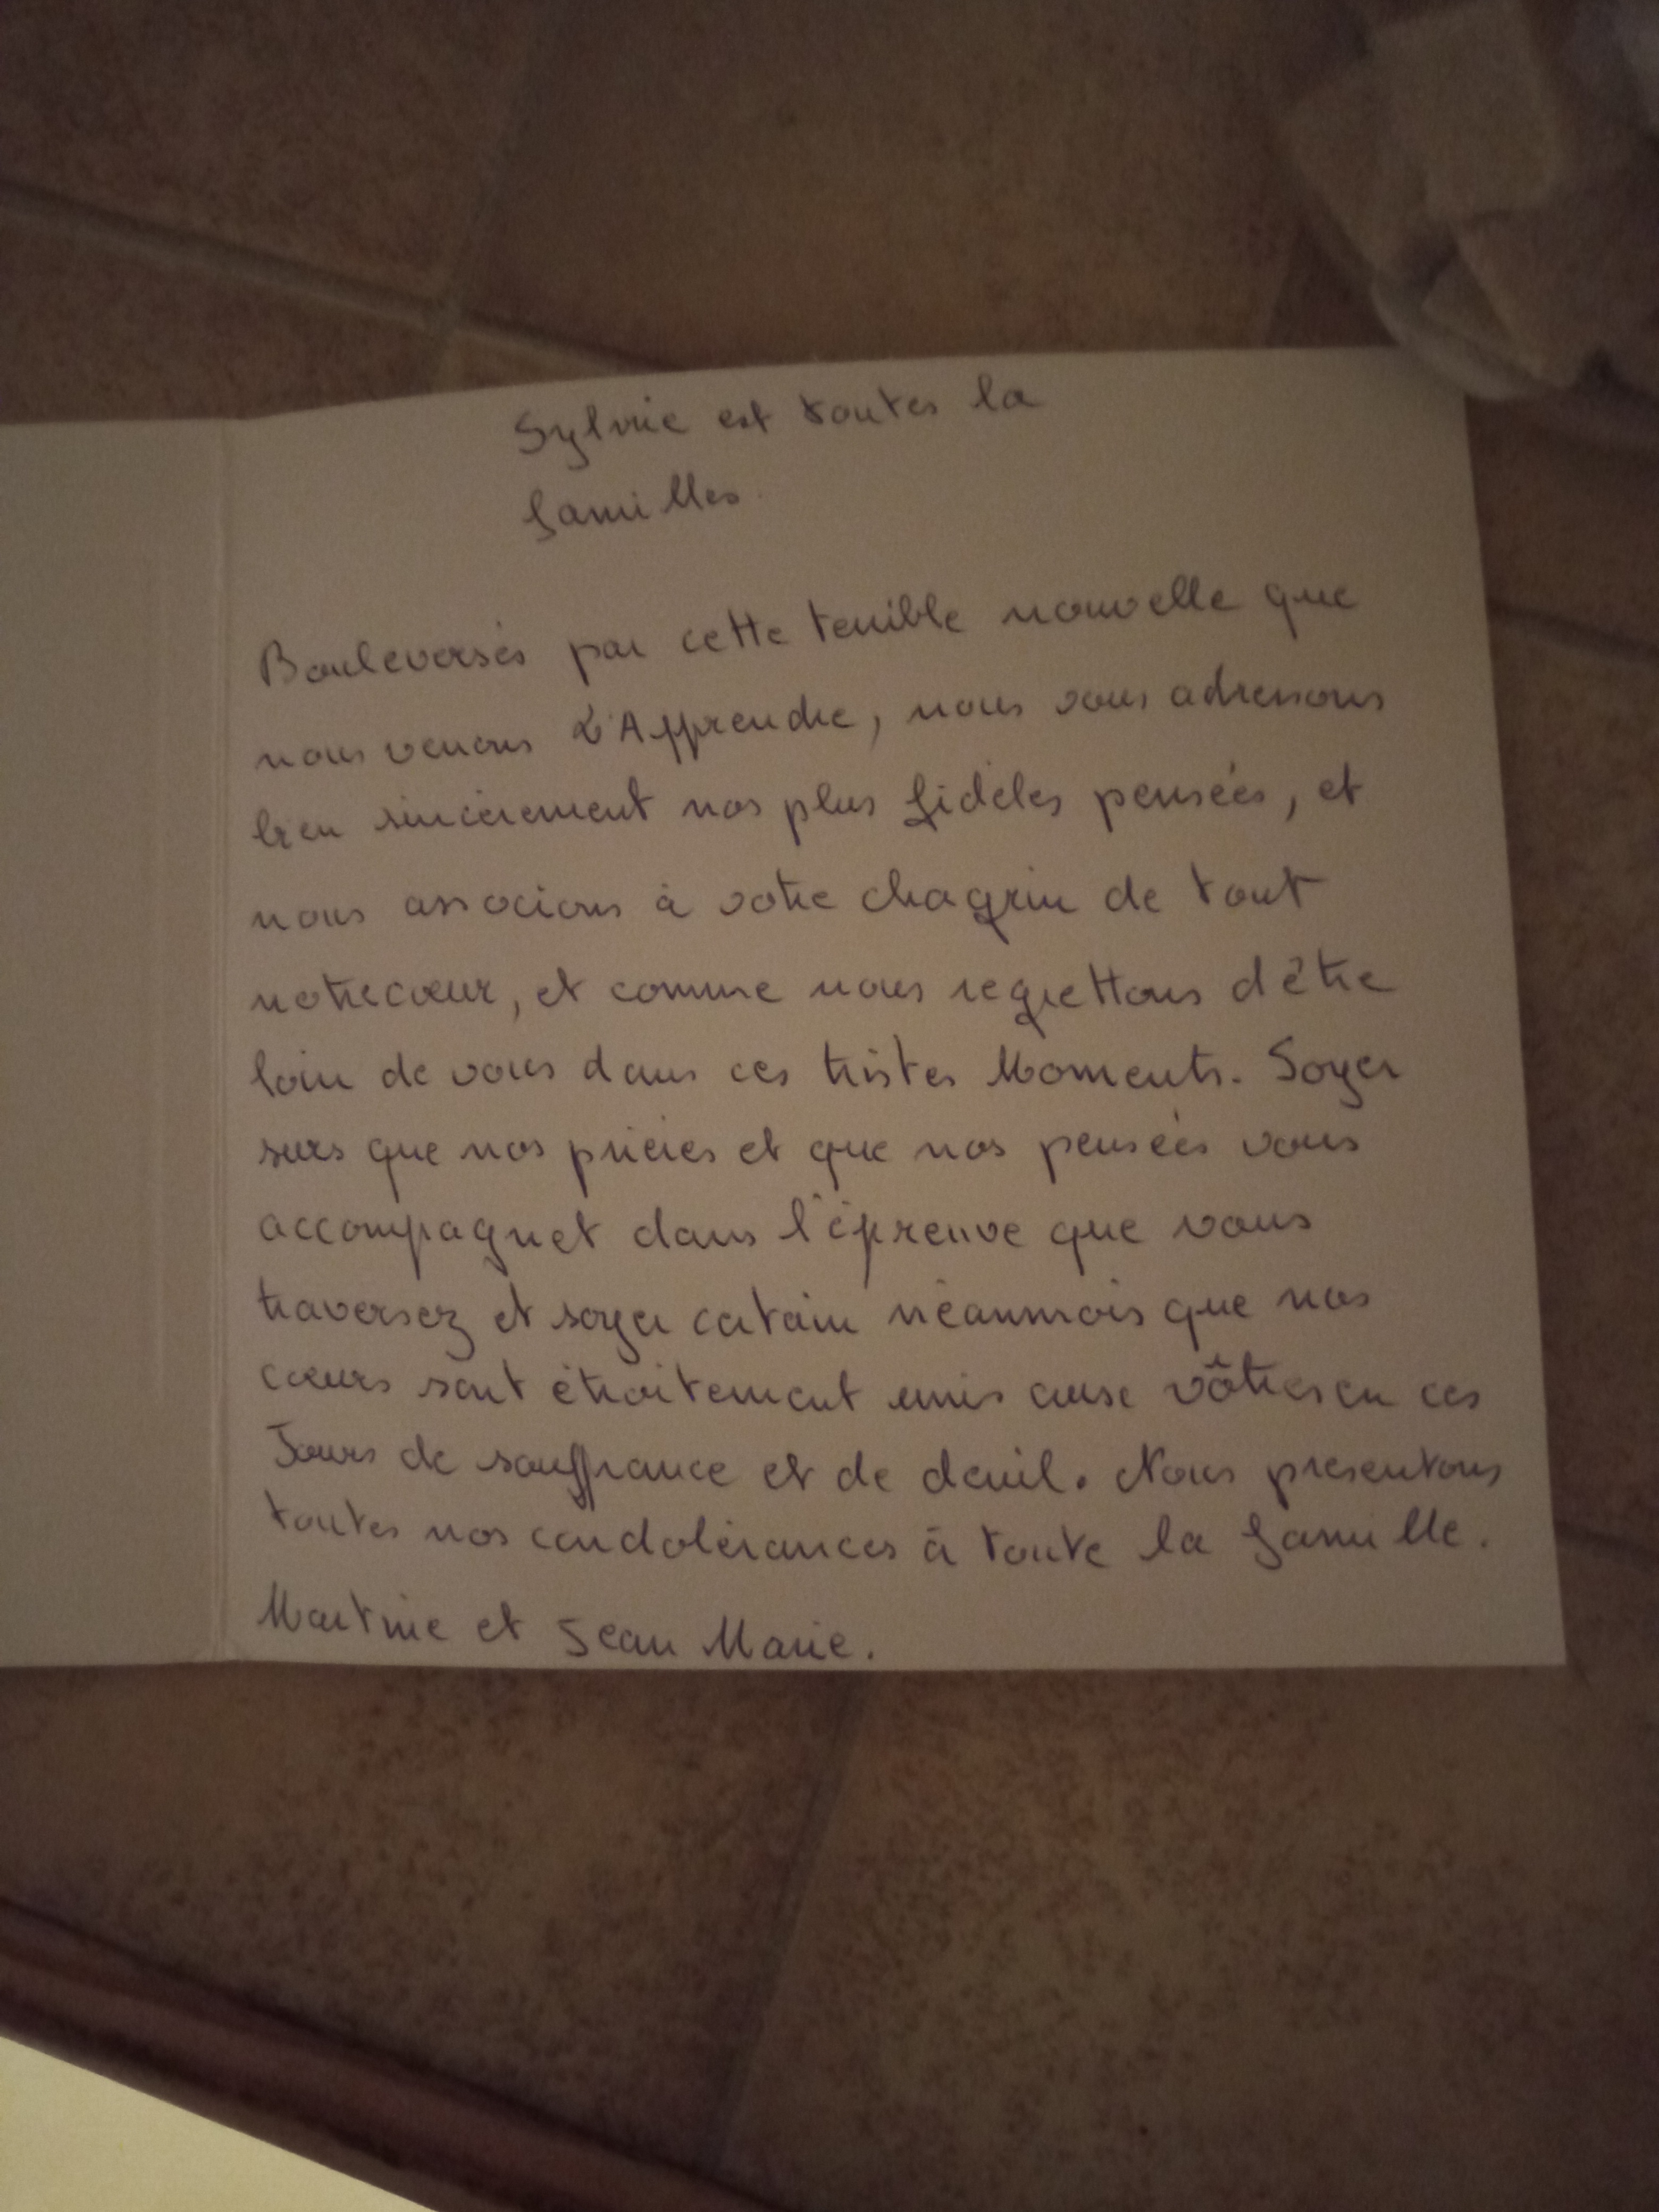 Sylvie est toutes la
familles.
Bouleversés par cette terrible nouvelle que
nous venons D'Apprendre, nous vous adressons
bien sincérement nos plus fidéles pensées, et
nous associons à votre chagrin de tout
notre cœur, et comme nous regrettons d'être
loin de vous dans ces tristes Moments. Soyer
surs que nos priéres et que nos pensées vous
accompagnet dans l'épreuve que vous
traversez et soyer certain néanmois que nos
cœurs sont étroitement unis aux vôtres en ces
Jours de souffrance et de deuil. Nous presentons
toutes nos condolérances à toute la famille.
Martine et Jean Marie.